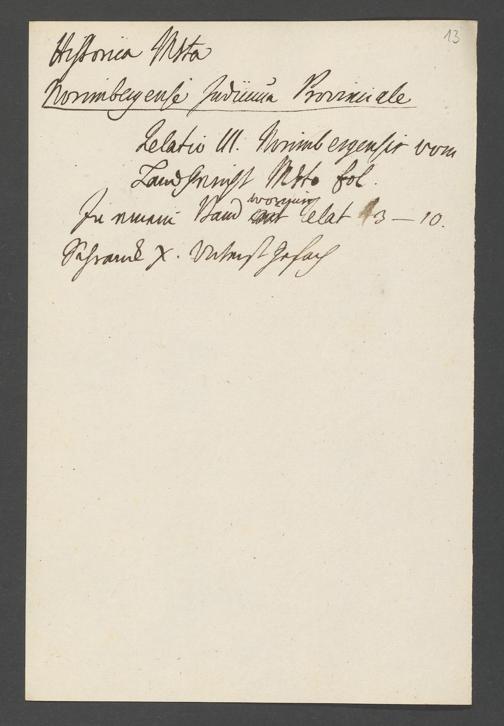 13
Historica Msta
Norimbergense Judicium Provinciale
Relatio III. Norimbergensis vom
Landgericht Msto fol.
In einem Band worinn Relat 3 – 10.
Schranck X. Unterst Gefach